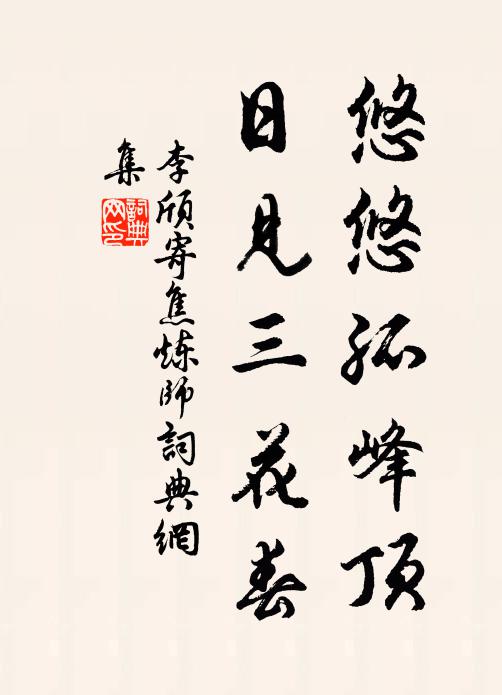 悠悠孤峰顶
日见三花春
李颀寄焦炼师詞典網
集
詞典网印